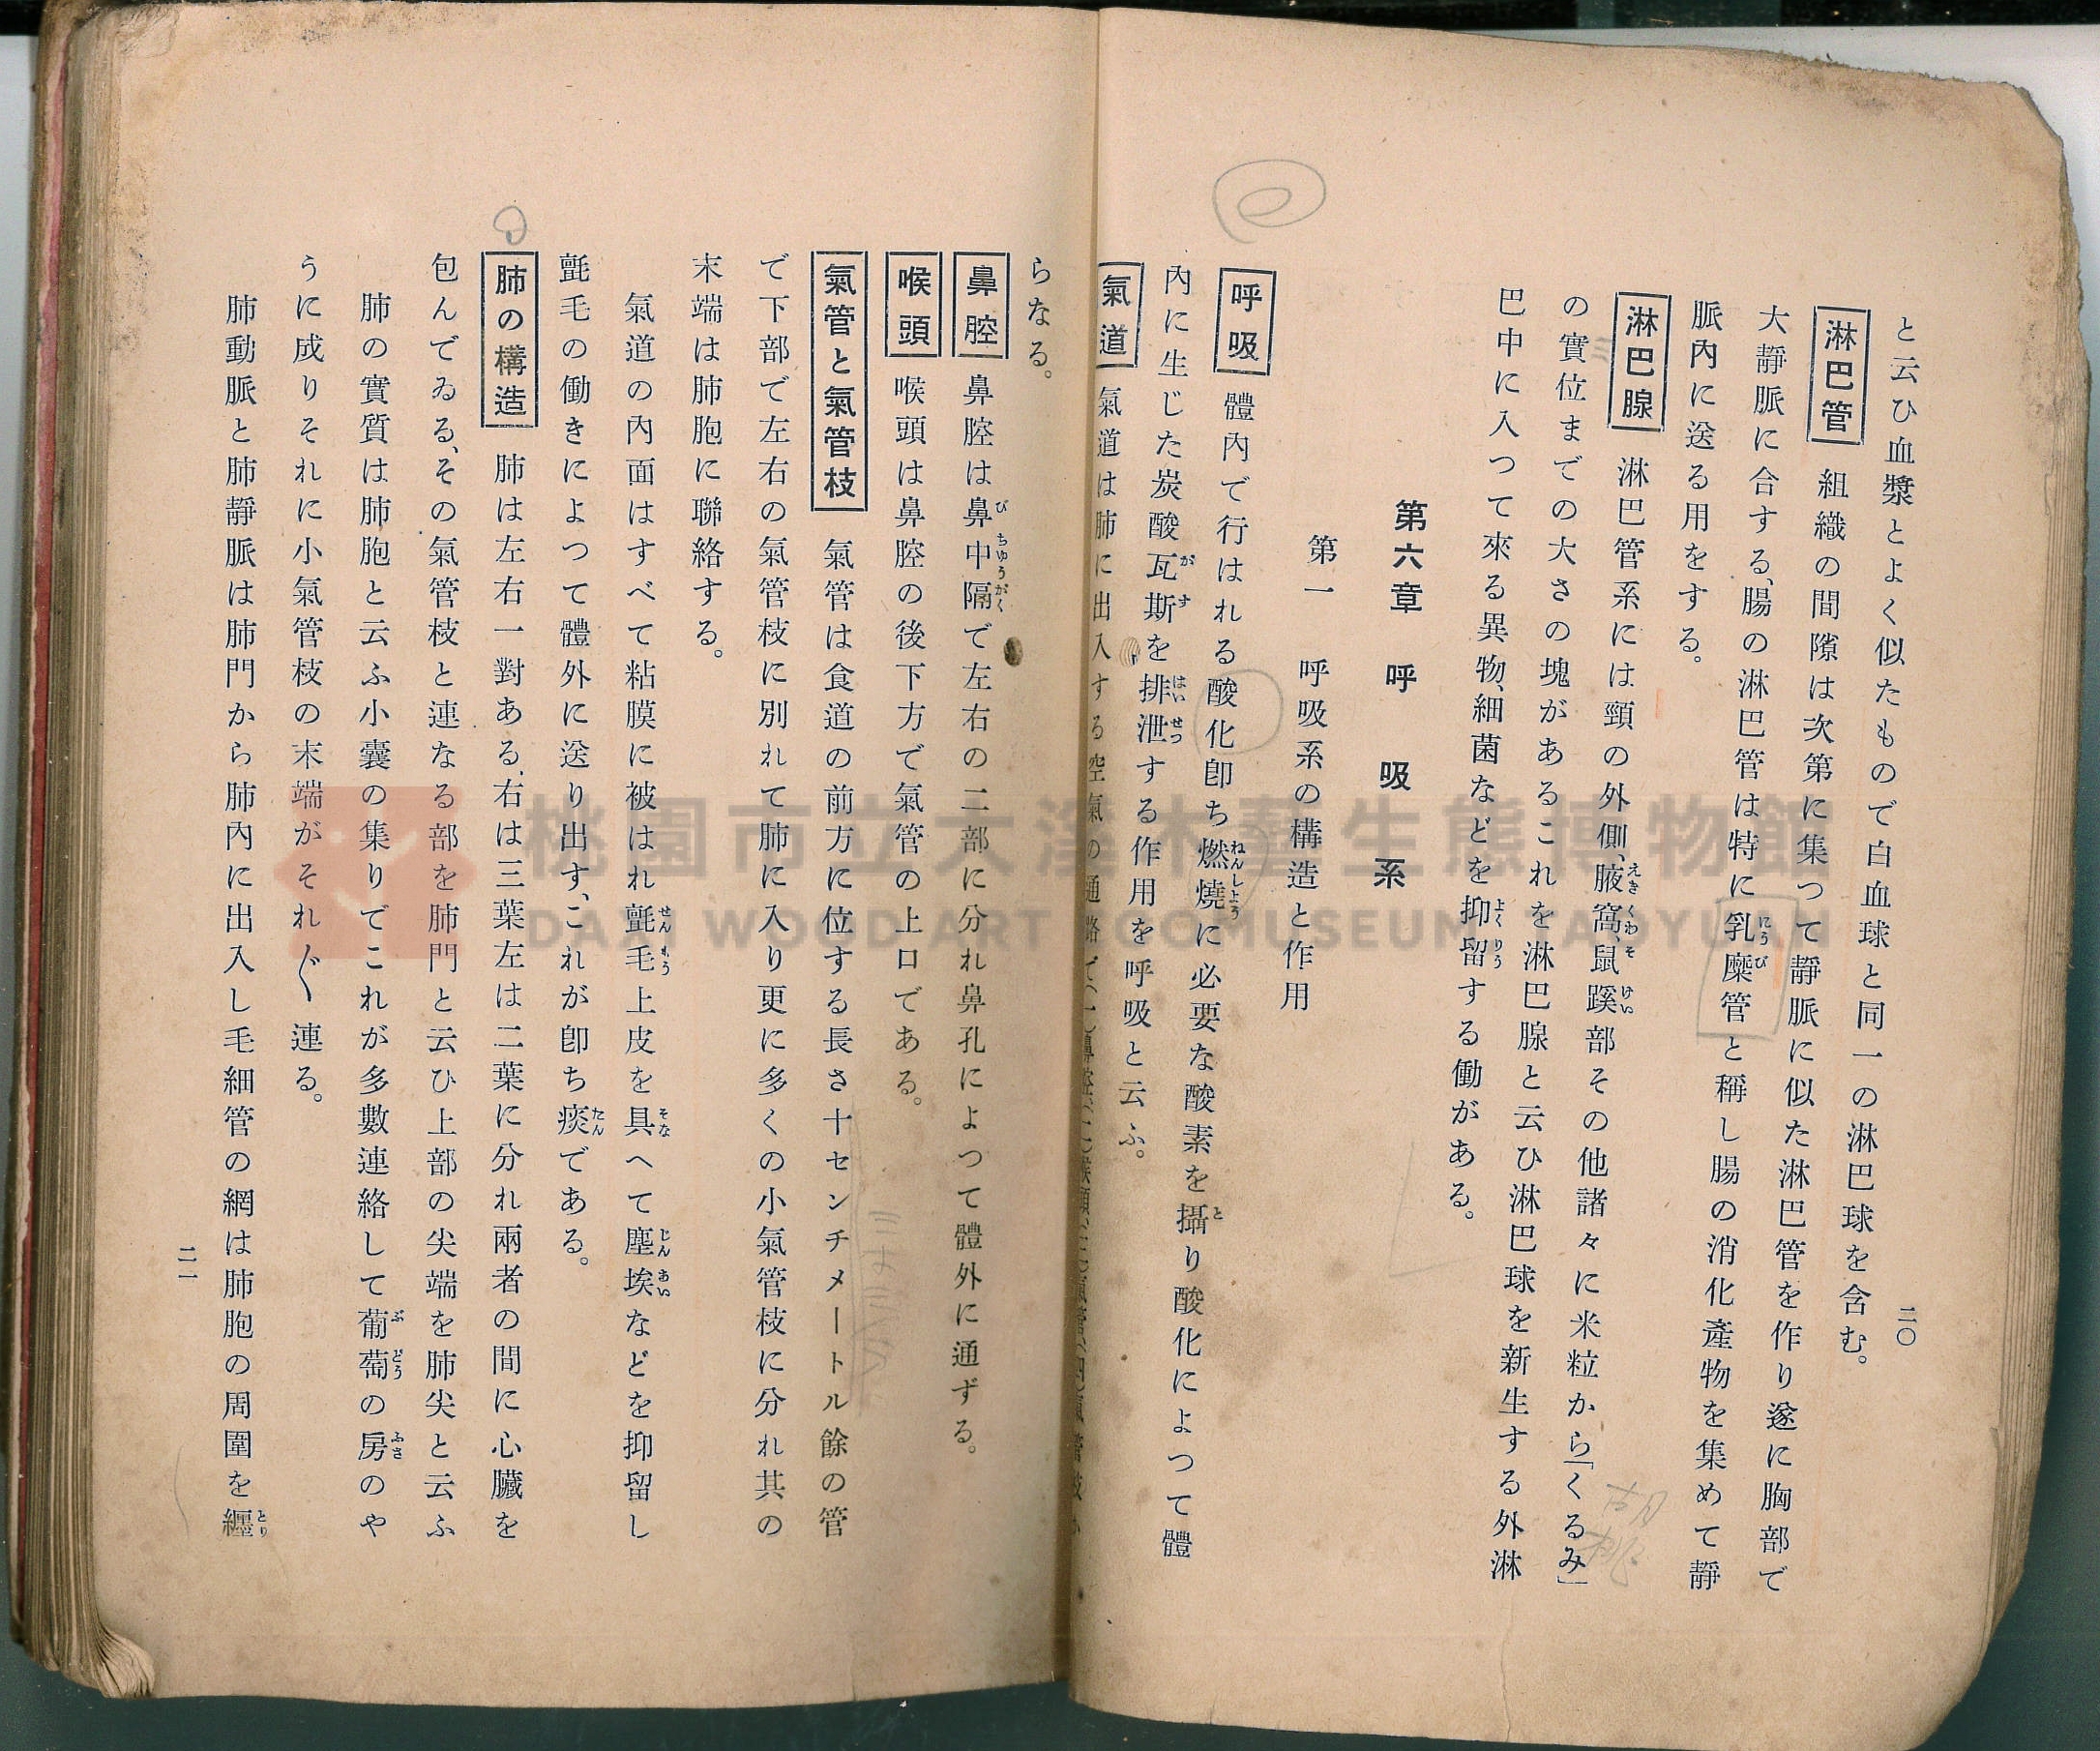 二〇
と云ひ血漿とよく似たもので白血球と同一の淋巴球を含む。
淋巴管 組織の間隙は次第に集つて靜脈に似た淋巴管を作り遂に胸部で
大靜脈に合する、腸の淋巴管は特に乳糜管と稱し腸の消化產物を集めて靜
脈內に送る用をする。
淋巴腺 淋巴管系には頸の外側、腋窩、鼠蹊部その他諸々に米粒から「くるみ」
の實位までの大さの塊があるこれを淋巴腺と云ひ淋巴球を新生する外淋
巴中に入つて來る異物、細菌などを抑留する働がある。
第六章 呼吸系
第一 呼吸系の構造と作用
呼吸 體內で行はれる酸化卽ち燃燒に必要な酸素を攝り酸化によつて體
內に生じた炭酸瓦斯を排泄する作用を呼吸と云ふ。
氣道 氣道は肺に出入する空氣の通路で(一)鼻腔、(二)喉頭、(三)氣管、(四)氣管枝か
らなる。
鼻腔 鼻腔は鼻中隔で左右の二部に分れ鼻孔によつて體外に通ずる。
喉頭 喉頭は鼻腔の後下方で氣管の上口である。
氣管と氣管枝 氣管は食道の前方に位する長さ十センチメートル餘の管
で下部で左右の氣管枝に別れて肺に入り更に多くの小氣管枝に分れ其の
末端は肺胞に聯絡する。
氣道の內面はすべて粘膜に被はれ氈毛上皮を具へて塵埃などを抑留し
氈毛の働きによつて體外に送り出す、これが卽ち痰である。
肺の構造 肺は左右一對ある、右は三葉左は二葉に分れ兩者の間に心臟を
包んでゐる、その氣管枝と連なる部を肺門と云ひ上部の尖端を肺尖と云ふ
肺の實質は肺胞と云ふ小囊の集りでこれが多數連絡して葡萄の房のや
うに成りそれに小氣管枝の末端がそれ〲連る。
肺動脈と肺靜脈は肺門から肺內に出入し毛細管の網は肺胞の周圍を纒
二一
胡桃
桃園市立大溪木藝生態博物館
DAXI WOOD ART ECOMUSEUM TAOYUAN